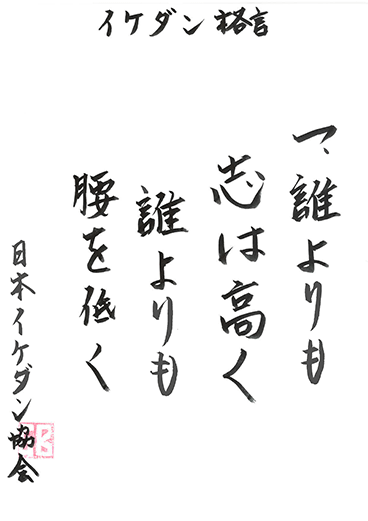 イケダン格言
一、誰よりも
志は高く
誰よりも
腰を低く
日本イケダン協会